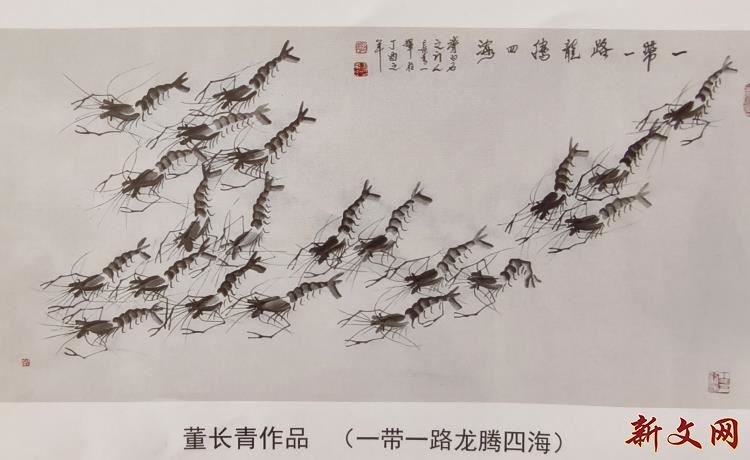 一帶一路龍騰四海
齊白石
之门人
長青一
丁酉之
年
董长青作品 （一带一路龙腾四海）
新文网